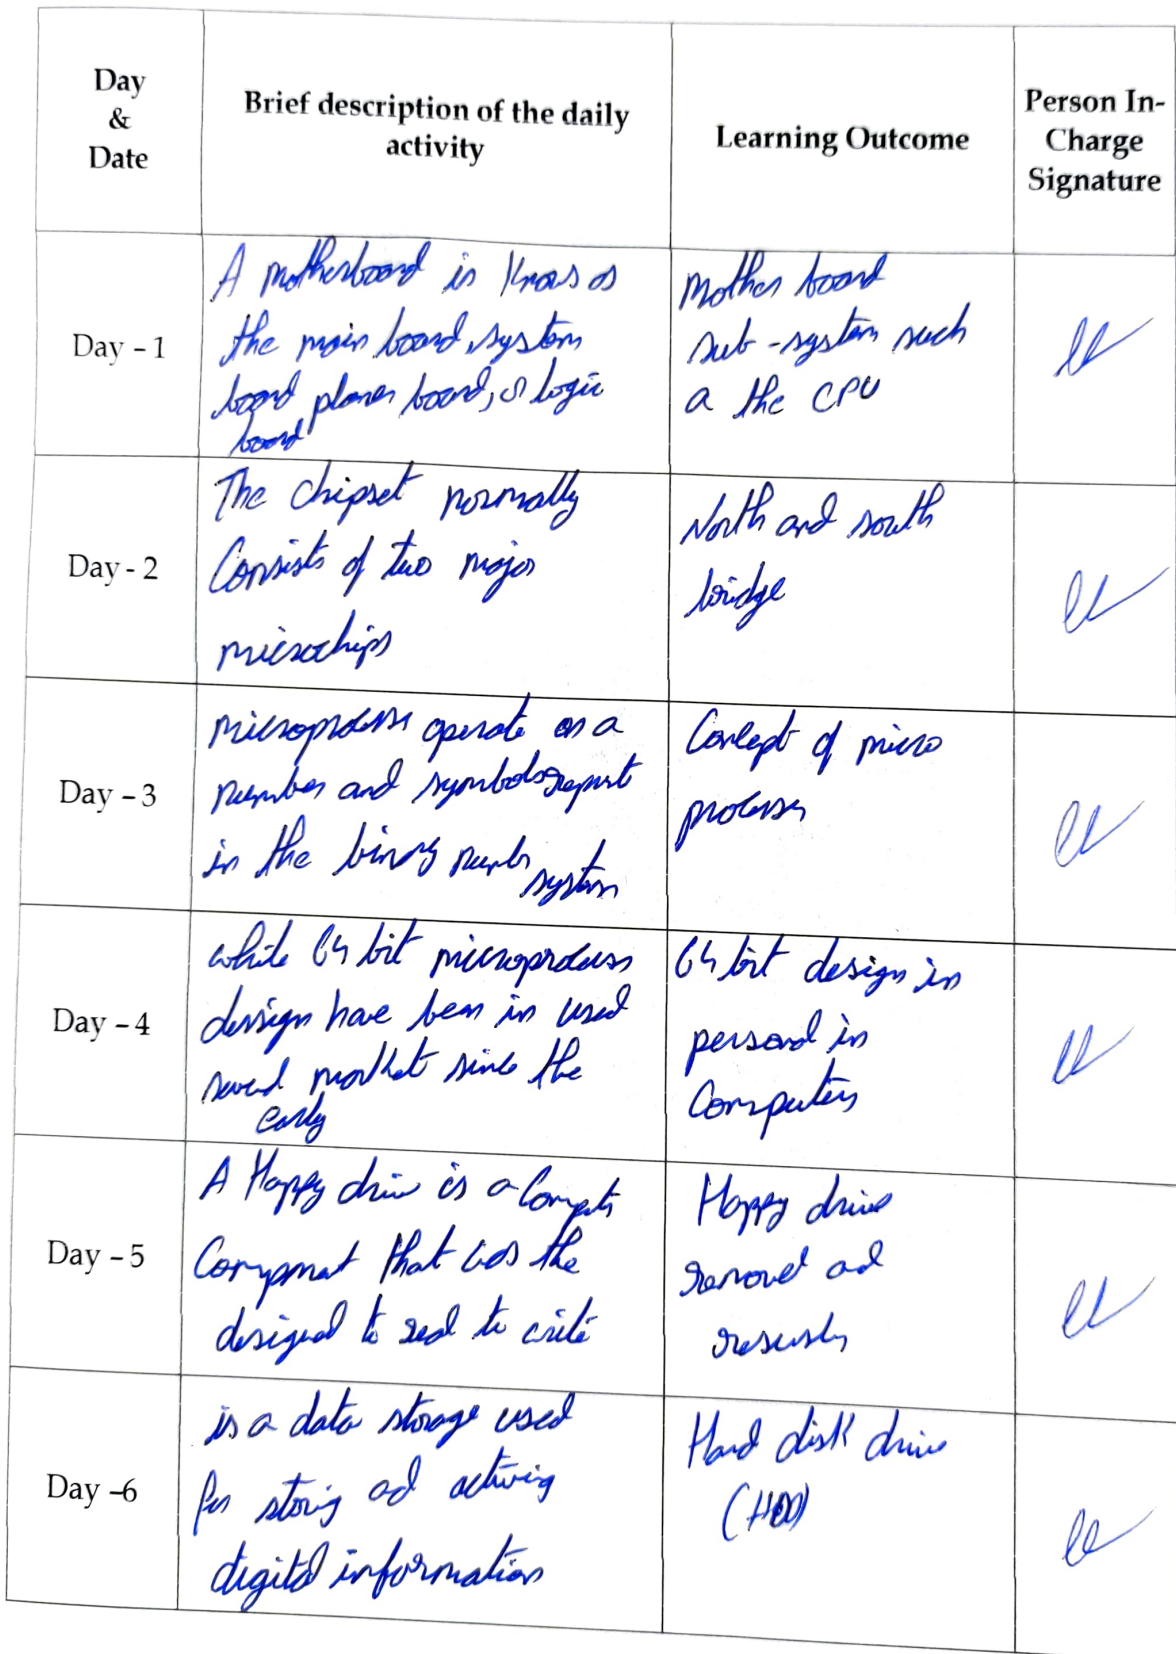 Day
&
Date
Brief description of the daily
activity
Learning Outcome
Person In-
Charge
Signature
Day - 1
A motherboard is knows as
the main board, system
board planer board, or logic
board
Mother board
sub-system such
a the CPU
Day - 2
The chipset normally
Consists of two major
microchips
North and south
bridge
Day - 3
operate on a
number and symbols
in the binary
system
Concept of micro
Day - 4
while 64 bit
design have been in used
market since the
early
64 bit design in
in
Computers
Day - 5
A Happy drive is a
that the
designed to read to write
Happy drive
Day -6
is a data storage used
for storing ad
digital information
Hard disk drive
(HDD)